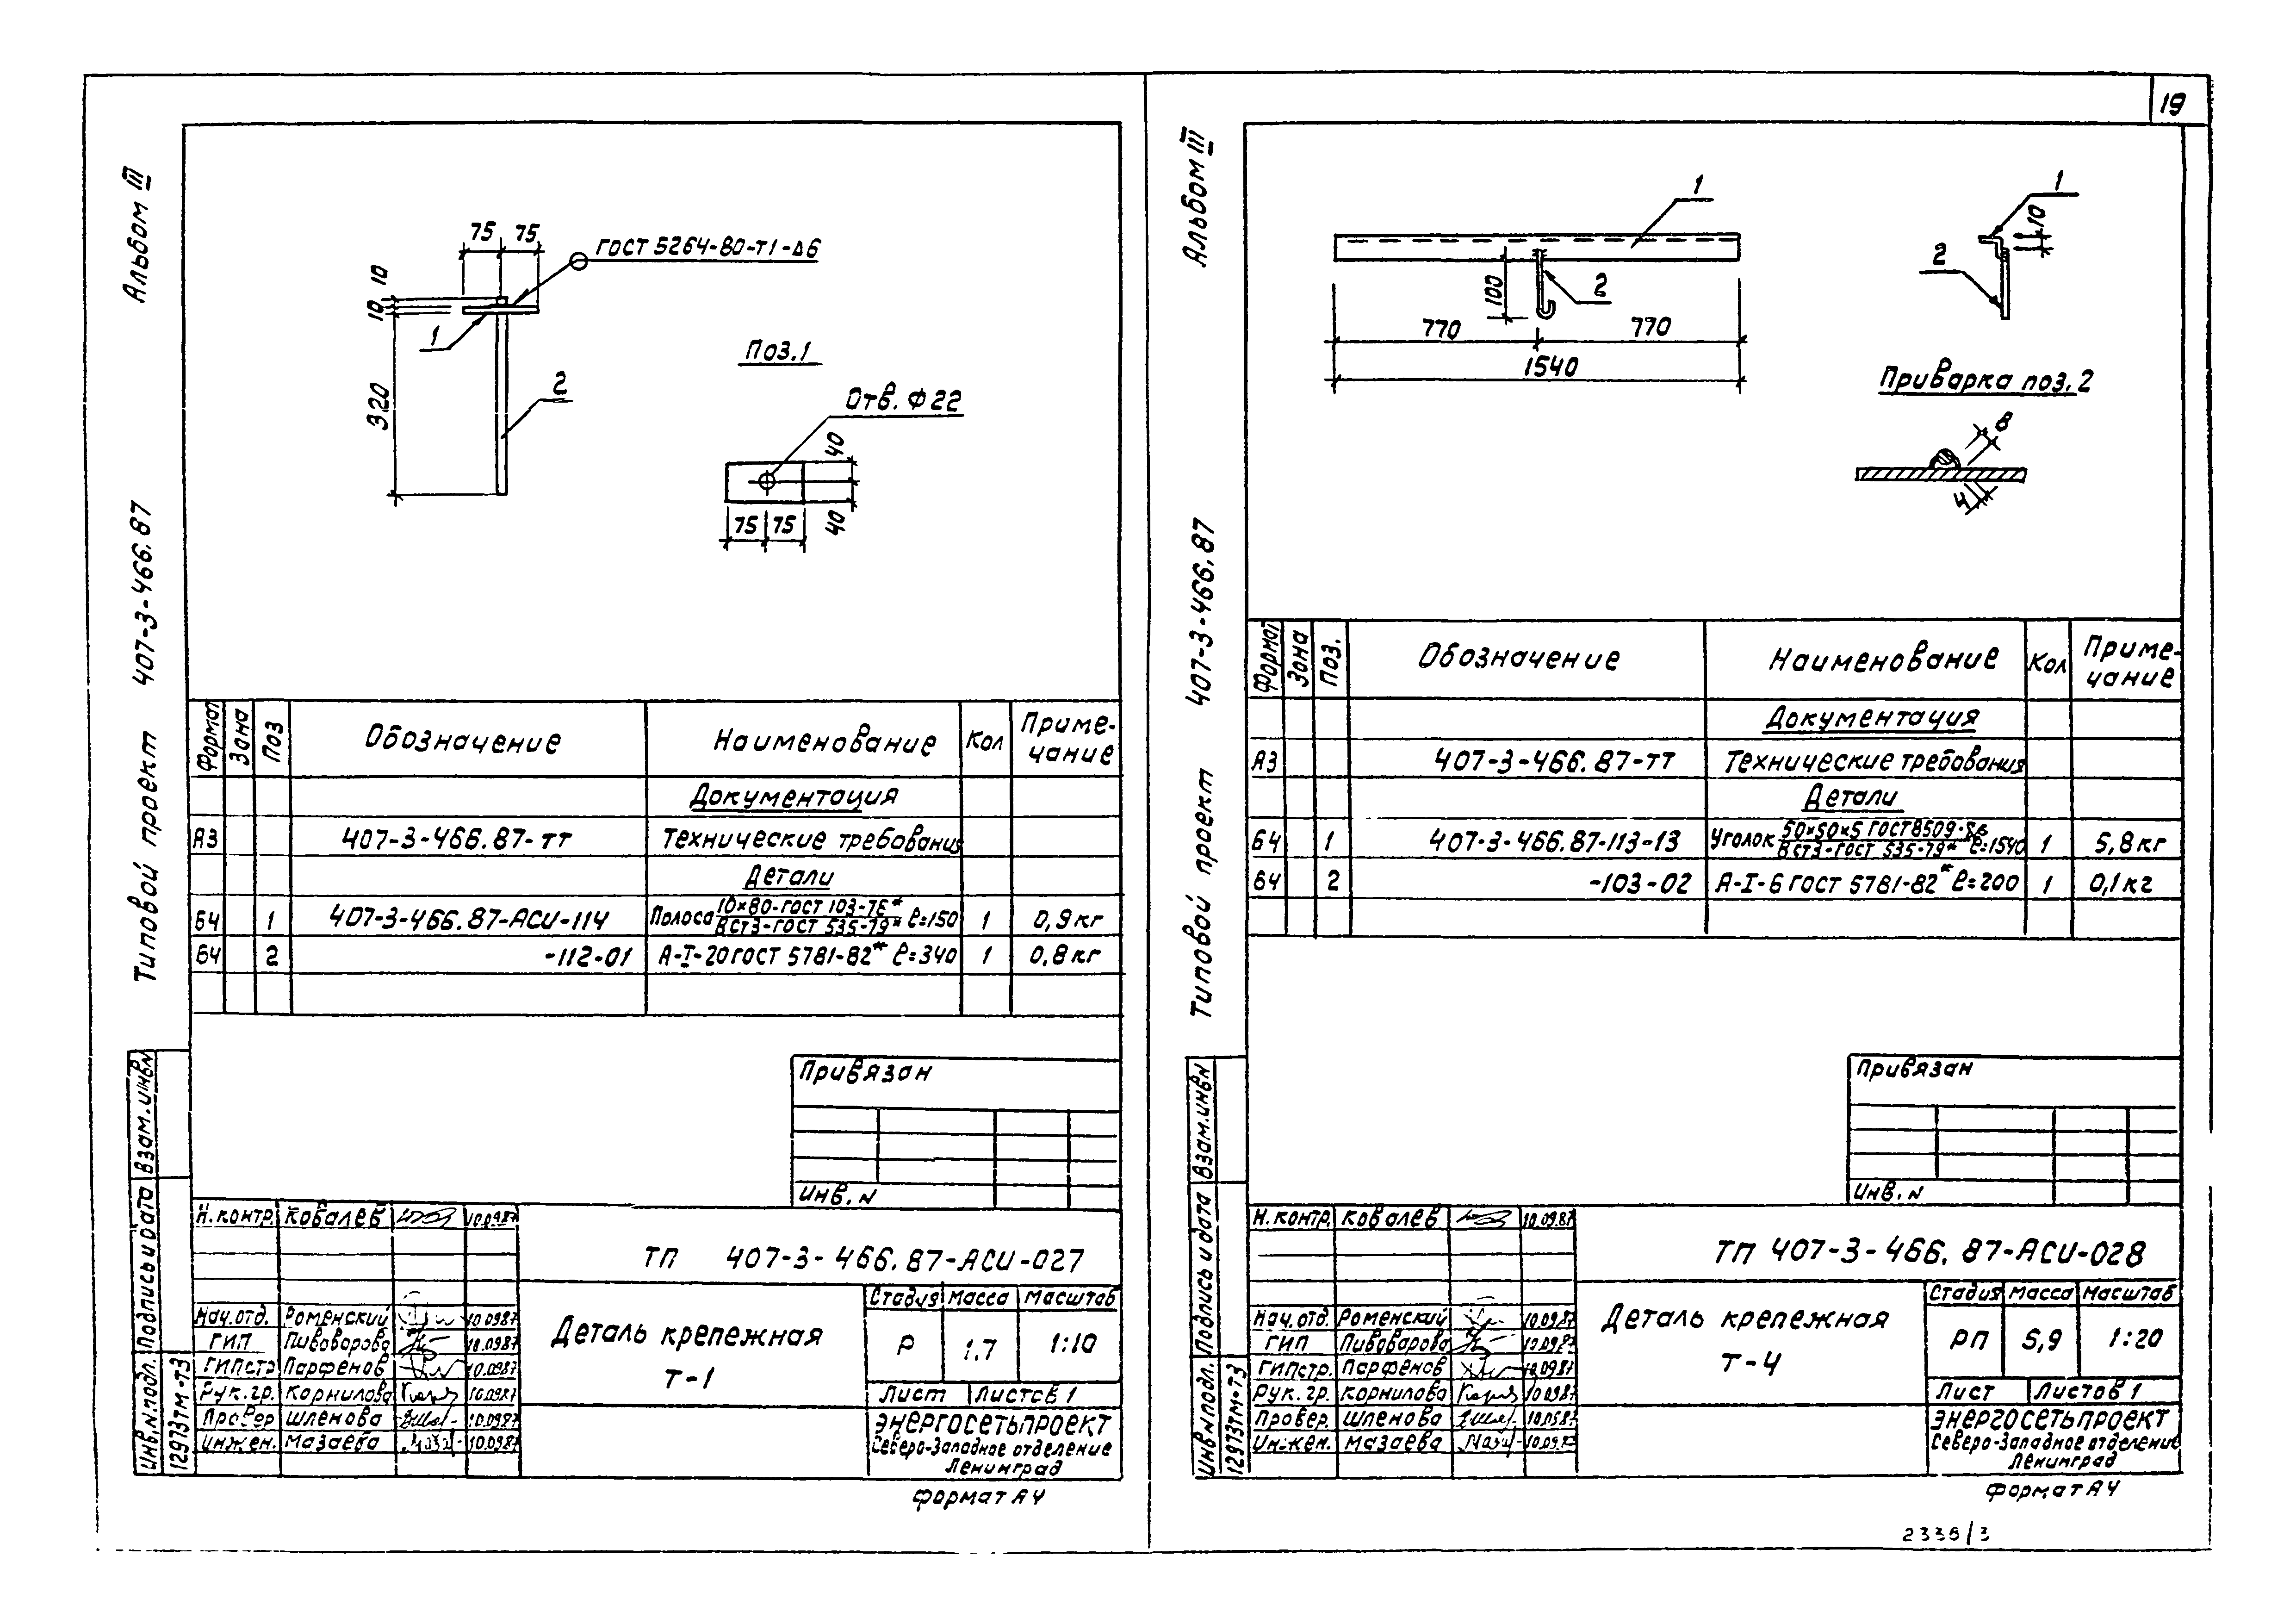 19
Альбом III
Типовой проект 407-3-466.87
75 75
ГОСТ 5264-80-Т1-Δ6
10
10
1
320
2
Поз.1
Отв. Ф22
40
40
75 75
Формат Зона Поз Обозначение Наименование Кол Приме-чание
Документация
А3 407-3-466.87-ТТ Технические требования
Детали
Б4 1 407-3-466.87-АСИ-114 Полоса 10×80-ГОСТ 103-76* / ВСт3-ГОСТ 535-79* ℓ=150 1 0,9кг
Б4 2 -112-01 А-I-20 ГОСТ 5781-82* ℓ=340 1 0,8кг
Привязан
Инв.N
Взам.инв.N
Подпись и дата
Инв.N подл.
12973тм-т3
Н.контр. Ковалев 10.09.87
ТП 407-3-466.87-АСИ-027
Нач.отд. Роменский 10.09.87
ГИП Пивоварова 10.09.87
ГИПстр Парфенов 10.09.87
Рук.гр. Корнилова 10.09.87
Провер Шленова 10.09.87
Инжен. Мазаева 10.09.87
Деталь крепежная
Т-1
Стадия Масса Масштаб
Р 1.7 1:10
Лист Листов 1
ЭНЕРГОСЕТЬПРОЕКТ
Северо-Западное отделение
Ленинград
Формат А4
Альбом III
Типовой проект 407-3-466.87
1
2
100
770 770
1540
1
10
2
Приварка поз.2
8
4
Формат Зона Поз. Обозначение Наименование Кол Приме-чание
Документация
А3 407-3-466.87-ТТ Технические требования
Детали
Б4 1 407-3-466.87-113-13 Уголок 50×50×5 ГОСТ 8509-86 / ВСт3-ГОСТ 535-79* ℓ=1540 1 5,8кг
Б4 2 -103-02 А-I-6 ГОСТ 5781-82* ℓ=200 1 0,1кг
Привязан
Инв.N
Взам.инв.N
Подпись и дата
Инв.N подл.
12973тм-т3
Н.контр. Ковалев 10.09.87
ТП 407-3-466.87-АСИ-028
Нач.отд. Роменский 10.09.87
ГИП Пивоварова 10.09.87
ГИПстр. Парфенов 10.09.87
Рук.гр. Корнилова 10.09.87
Провер. Шленова 10.09.87
Инжен. Мазаева 10.09.87
Деталь крепежная
Т-4
Стадия Масса Масштаб
РП 5,9 1:20
Лист Листов 1
ЭНЕРГОСЕТЬПРОЕКТ
Северо-Западное отделение
Ленинград
Формат А4
2339/3